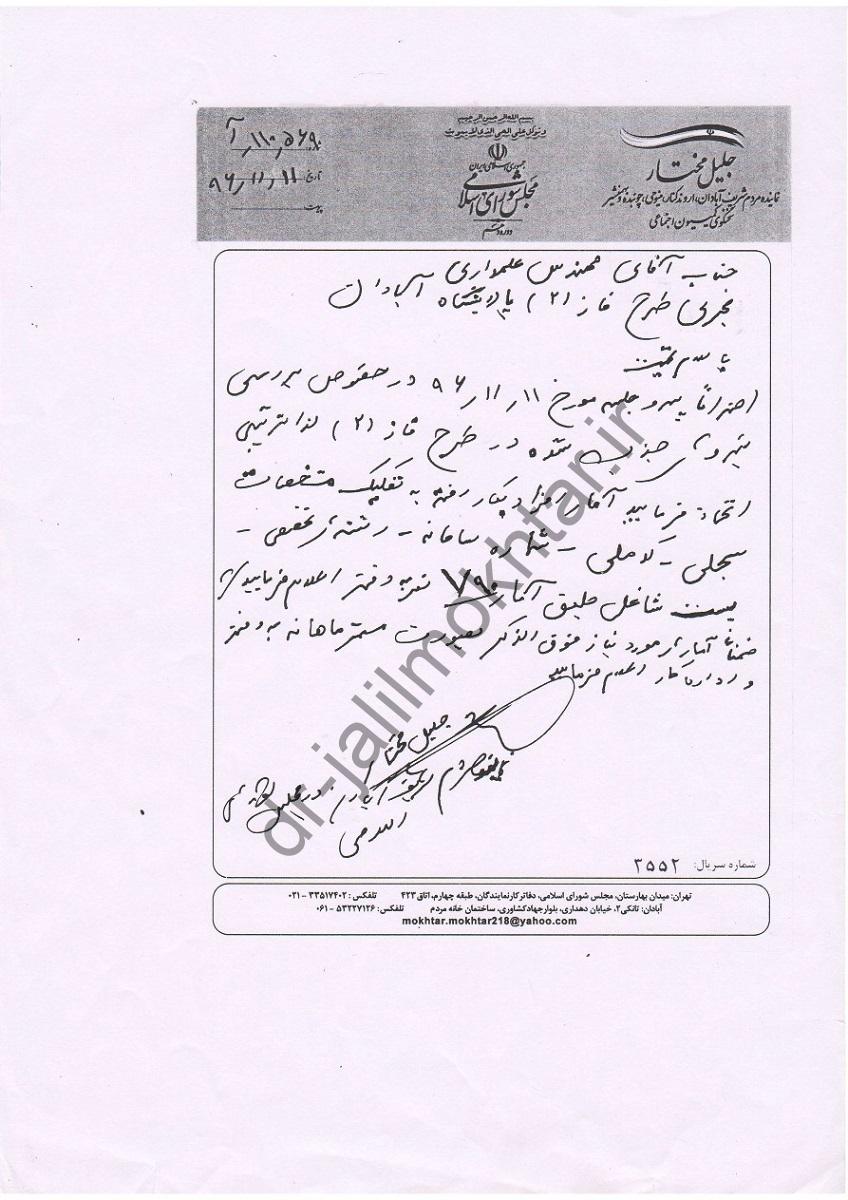 بسم الله الرحمن الرحیم
جمهوری اسلامی ایران
مجلس شورای اسلامی
جلیل مختار
نماینده مردم شریف آبادان، اروندکنار، مینوحی، چوئبده و بهمنشیر
سخنگوی کمیسیون اجتماعی
تاریخ: ۹۶٫۱۱٫۱۱
جناب آقای مهندس علمداری
مجری طرح فاز (۲) پالایشگاه آبادان
با سلام و تحیت
احتراماً پیرو جلسه مورخ ۹۶٫۱۱٫۱۱ در خصوص بررسی
نیروهای جذب شده در طرح فاز (۲) لذا ترتیبی
اتخاذ فرمایید آمار افراد بکار رفته به تفکیک مشخصات
سجلی - کد ملی - شماره سامانه - رشته تخصصی -
پست شاغل طبق آمار نفر به دفتر اعلام فرمایید
ضمناً آمار مورد نیاز فوق الذکر بصورت مستمر ماهانه به دفتر
و اداره کار اعلام فرمایید
جلیل مختار
نماینده مردم شریف آبادان در مجلس شورای
اسلامی
شماره سریال: ۳۵۵۲
تهران: میدان بهارستان، مجلس شورای اسلامی، دفاتر کار نمایندگان، طبقه چهارم، اتاق ۴۲۳ تلفکس: ۳۳۵۱۷۴۰۲ - ۰۲۱
آبادان: تانکی۲، خیابان دهداری، بلوار جهاد کشاورزی، ساختمان خانه مردم تلفکس: ۵۳۲۲۷۱۲۶ - ۰۶۱
mokhtar.mokhtar218@yahoo.com
dr-jalilmokhtar.ir